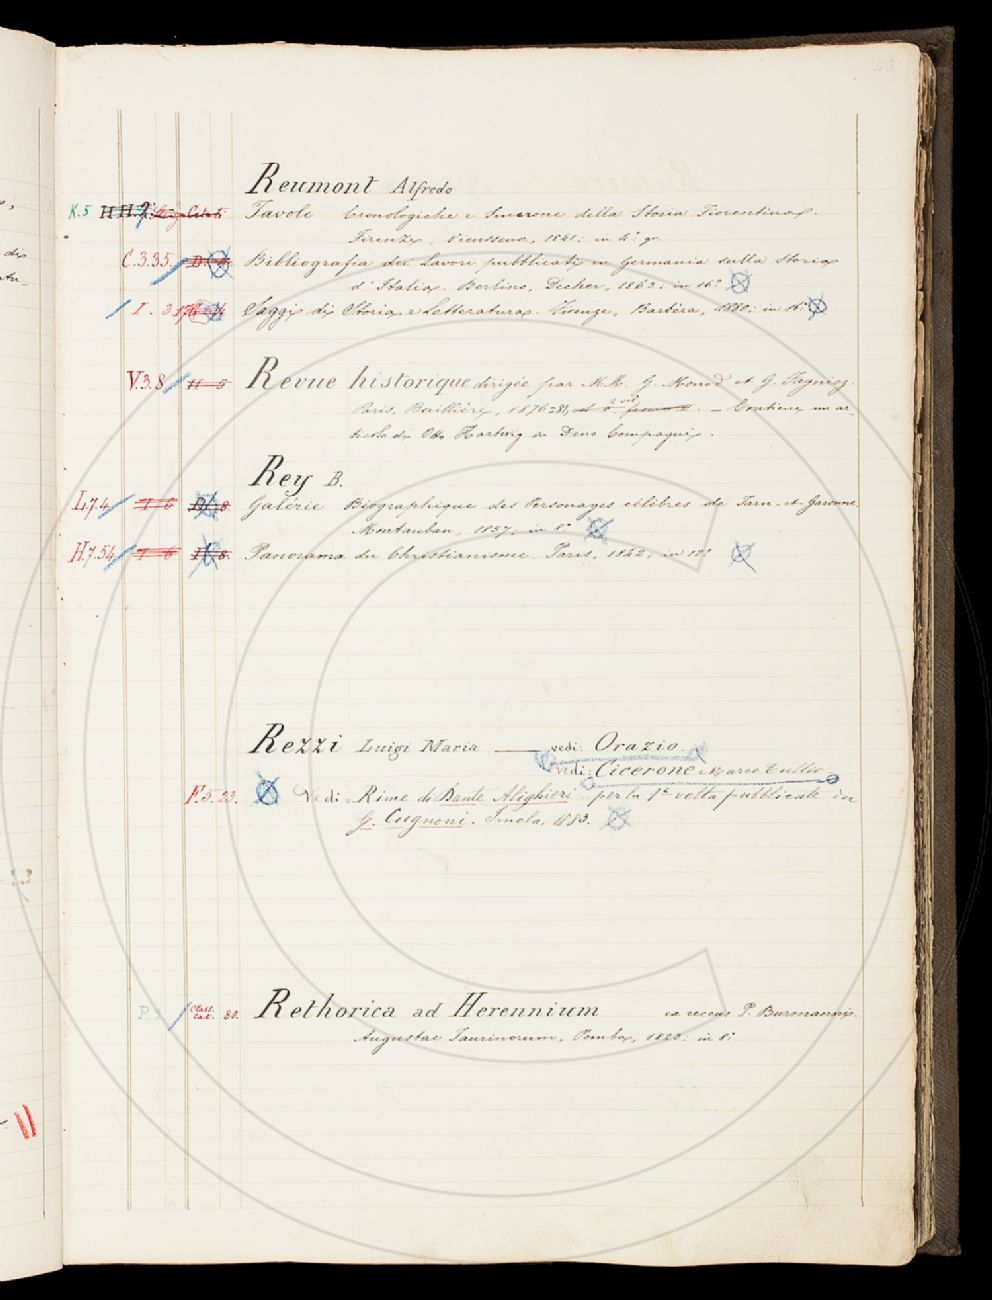 43
Reumont Alfredo
K.5 Tavole Cronologiche e Sincrone della Storia Fiorentina.
Firenze, Vieusseux, 1841; in 4.° gr.
C.3.35. Bibliografia dei Lavori pubblicati in Germania sulla Storia
d'Italia. Berlino, Decker, 1863; in 16.°
I. 3 Saggi di Storia e Letteratura. Firenze, Barbèra, 1880; in 16.°
V.3.8 H 5 Revue historique dirigée par M.M. G. Monod et G. Fagniez.
Paris, Baillière, 1876 Contiene un ar-
ticolo di Otto Hartwig su Dino Compagni.
Rey B.
L.7.4 I 6 8. Galérie Biographique des Personages célèbres de Tarn-et-Garonne.
Montauban, 1857; in 8.°
H.7.54 I 6 8. Panorama du Christianisme. Paris, 1842; in 12.°
Rezzi Luigi Maria — vedi: Orazio.
vedi: Cicerone Marco Tullio
F.5.23. Vedi Rime di Dante Alighieri per la 1ª volta pubblicate da
G. Cugnoni. Imola, 1883.
P. Class. Lat. 80. Rethorica ad Herennium ex recens P. Burmanni.
Augustae Taurinorum, Pomba, 1828; in 8.°